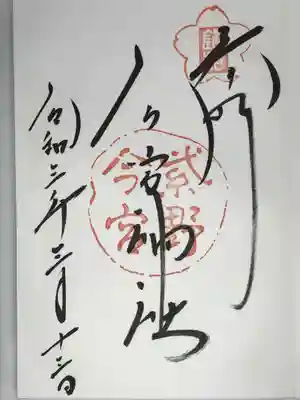 奉拝
今宮神社
紫野
今宮
令和三年三月十三日